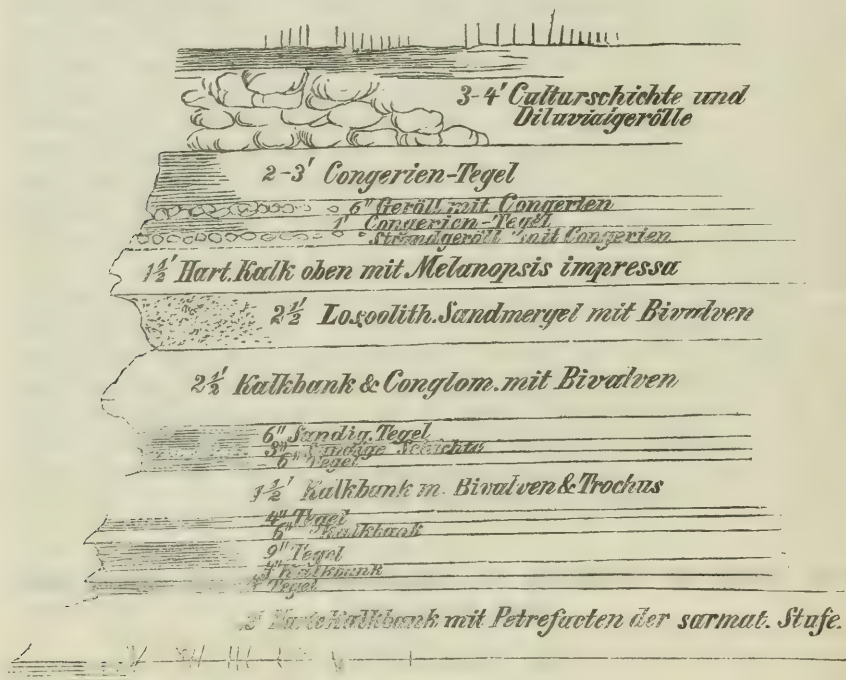 3-4' Culturschichte und
Diluvialgerölle
2-3' Congerien-Tegel
6" Geröll mit Congerien
1' Congerien-Tegel
Strandgeröll mit Congerien
1½' Hart. Kalk oben mit Melanopsis impressa
2½' Losoolith. Sandmergel mit Bivalven
2½' Kalkbank & Conglom. mit Bivalven
6" Sandig. Tegel
3" Sandige Schichte
6" Tegel
1½' Kalkbank m. Bivalven & Trochus
4" Tegel
6" Kalkbank
9" Tegel
Kalkbank
Tegel
Harte Kalkbank mit Petrefacten der sarmat. Stufe.